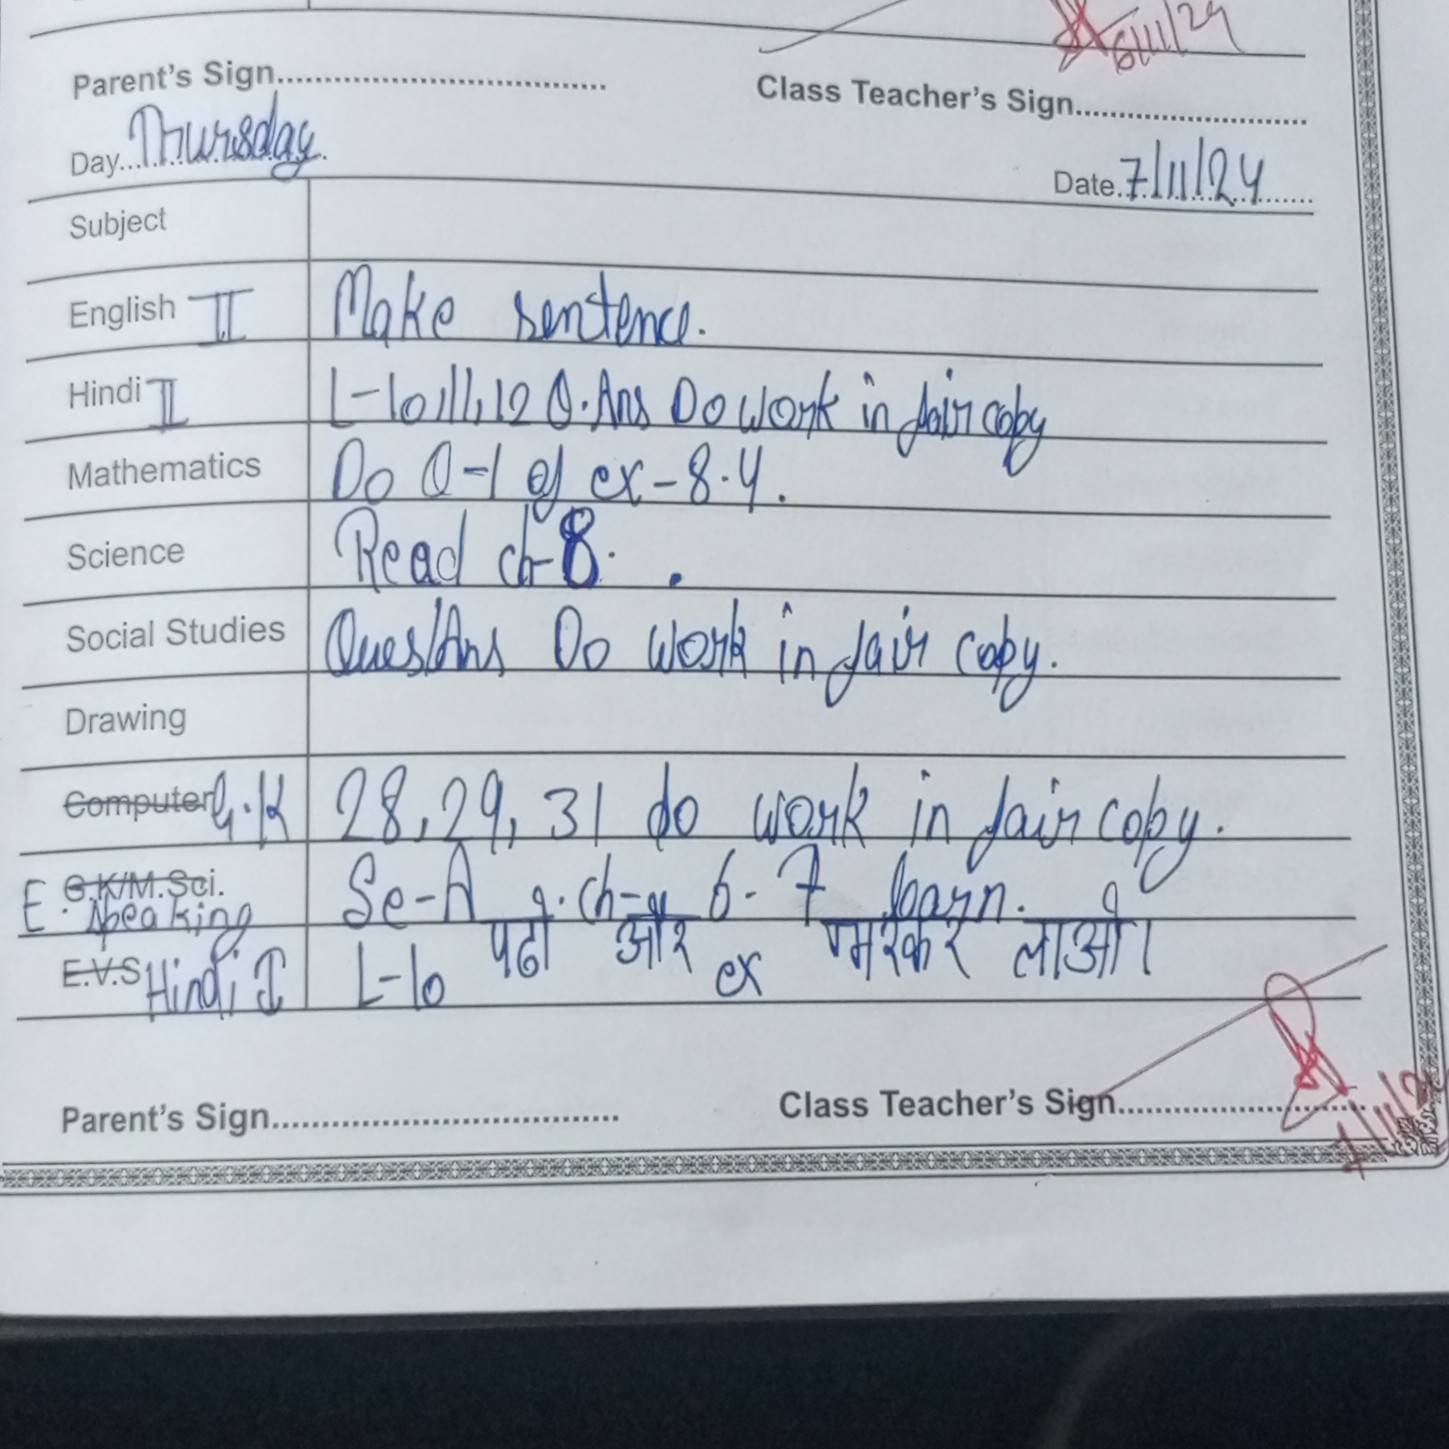 6/11/24
Parent's Sign.......................................
Class Teacher's Sign..............................
Day...Thursday.
Date.7/11/24
Subject
English II Make sentence.
Hindi II L-10,11,12 Q.Ans Do work in fair copy
Mathematics Do Q-1 of ex-8.4.
Science Read ch-8.
Social Studies Ques/Ans Do work in fair copy.
Drawing
Computer G.K 28, 29, 31 do work in fair copy.
G.K/M.Sci. E. Speaking Se-A ch- 6-7 learn.
E.V.S Hindi I L-10 पढो और ex लाओ।
Parent's Sign.......................................
Class Teacher's Sign..............................
7/11/2